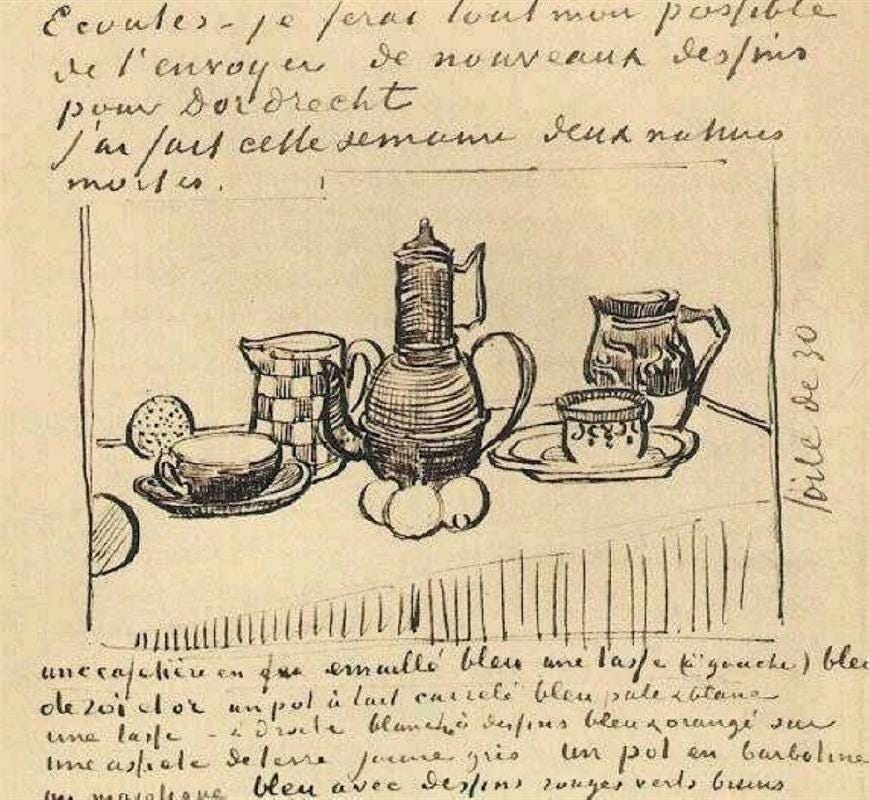 Ecoutes - je ferai tout mon possible
de t'envoyer de nouveaux dessins
pour Dordrecht
J'ai fait cette semaine deux natures
mortes.
toile de 30
une cafetière en fer emaillé bleu une tasse (à gauche) bleu
de roi et or un pot à lait carrelé bleu pale & blanc
une tasse - à droite blanche à dessins bleu & orangé sur
une assiete de terre jaune gris un pot en barbotine
ou majolique bleu avec dessins rouges verts bruns